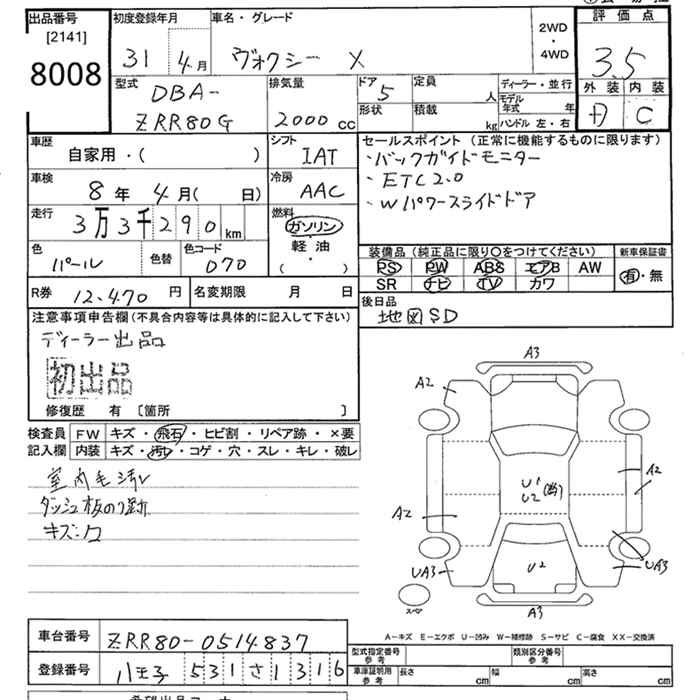 出品番号
[2141]
8008
初度登録年月
31 4月
車名・グレード
ヴォクシー X
2WD
・
4WD
評価点
3.5
外装 内装
D C
型式
DBA-
ZRR80G
排気量
2000 cc
ドア
5
形状
定員
人
積載
kg
ディーラー・並行
モデル年式 年
ハンドル 左・右
車歴
自家用・( )
シフト
IAT
セールスポイント (正常に機能するものに限ります)
・バックガイドモニター
・ETC2.0
・Wパワースライドドア
車検
8年 4月( 日)
冷房
AAC
走行
3万3千290 km
燃料
ガソリン
・
軽油
・
( )
色
パール
色替
色コード
070
装備品 (純正品に限り○をつけてください)
PS PW ABS エアB AW
SR ナビ TV カワ
新車保証書
有・無
R券 12,470 円
名変期限 月 日
後日品
地図SD
注意事項申告欄(不具合内容等は具体的に記入して下さい)
ディーラー出品
初出品
修復歴 有 [箇所 ]
検査員
記入欄
FW キズ・飛石・ヒビ割・リペア跡・×要
内装 キズ・汚れ・コゲ・穴・スレ・キレ・破レ
室内毛汚レ
ダッシュ板のり跡
キズ:ロ
A3
A2
A2
U1
U2
A2
UA3
U2
UA3
スペア
A3
A-キズ E-エクボ U-凹み W-補修跡 S-サビ C-腐食 XX-交換済
車台番号 ZRR80-0514837
登録番号 八王子 531さ1316
型式指定番号
参考
類別区分番号
参考
車庫証明用
参考
長さ cm 幅 cm 高さ cm